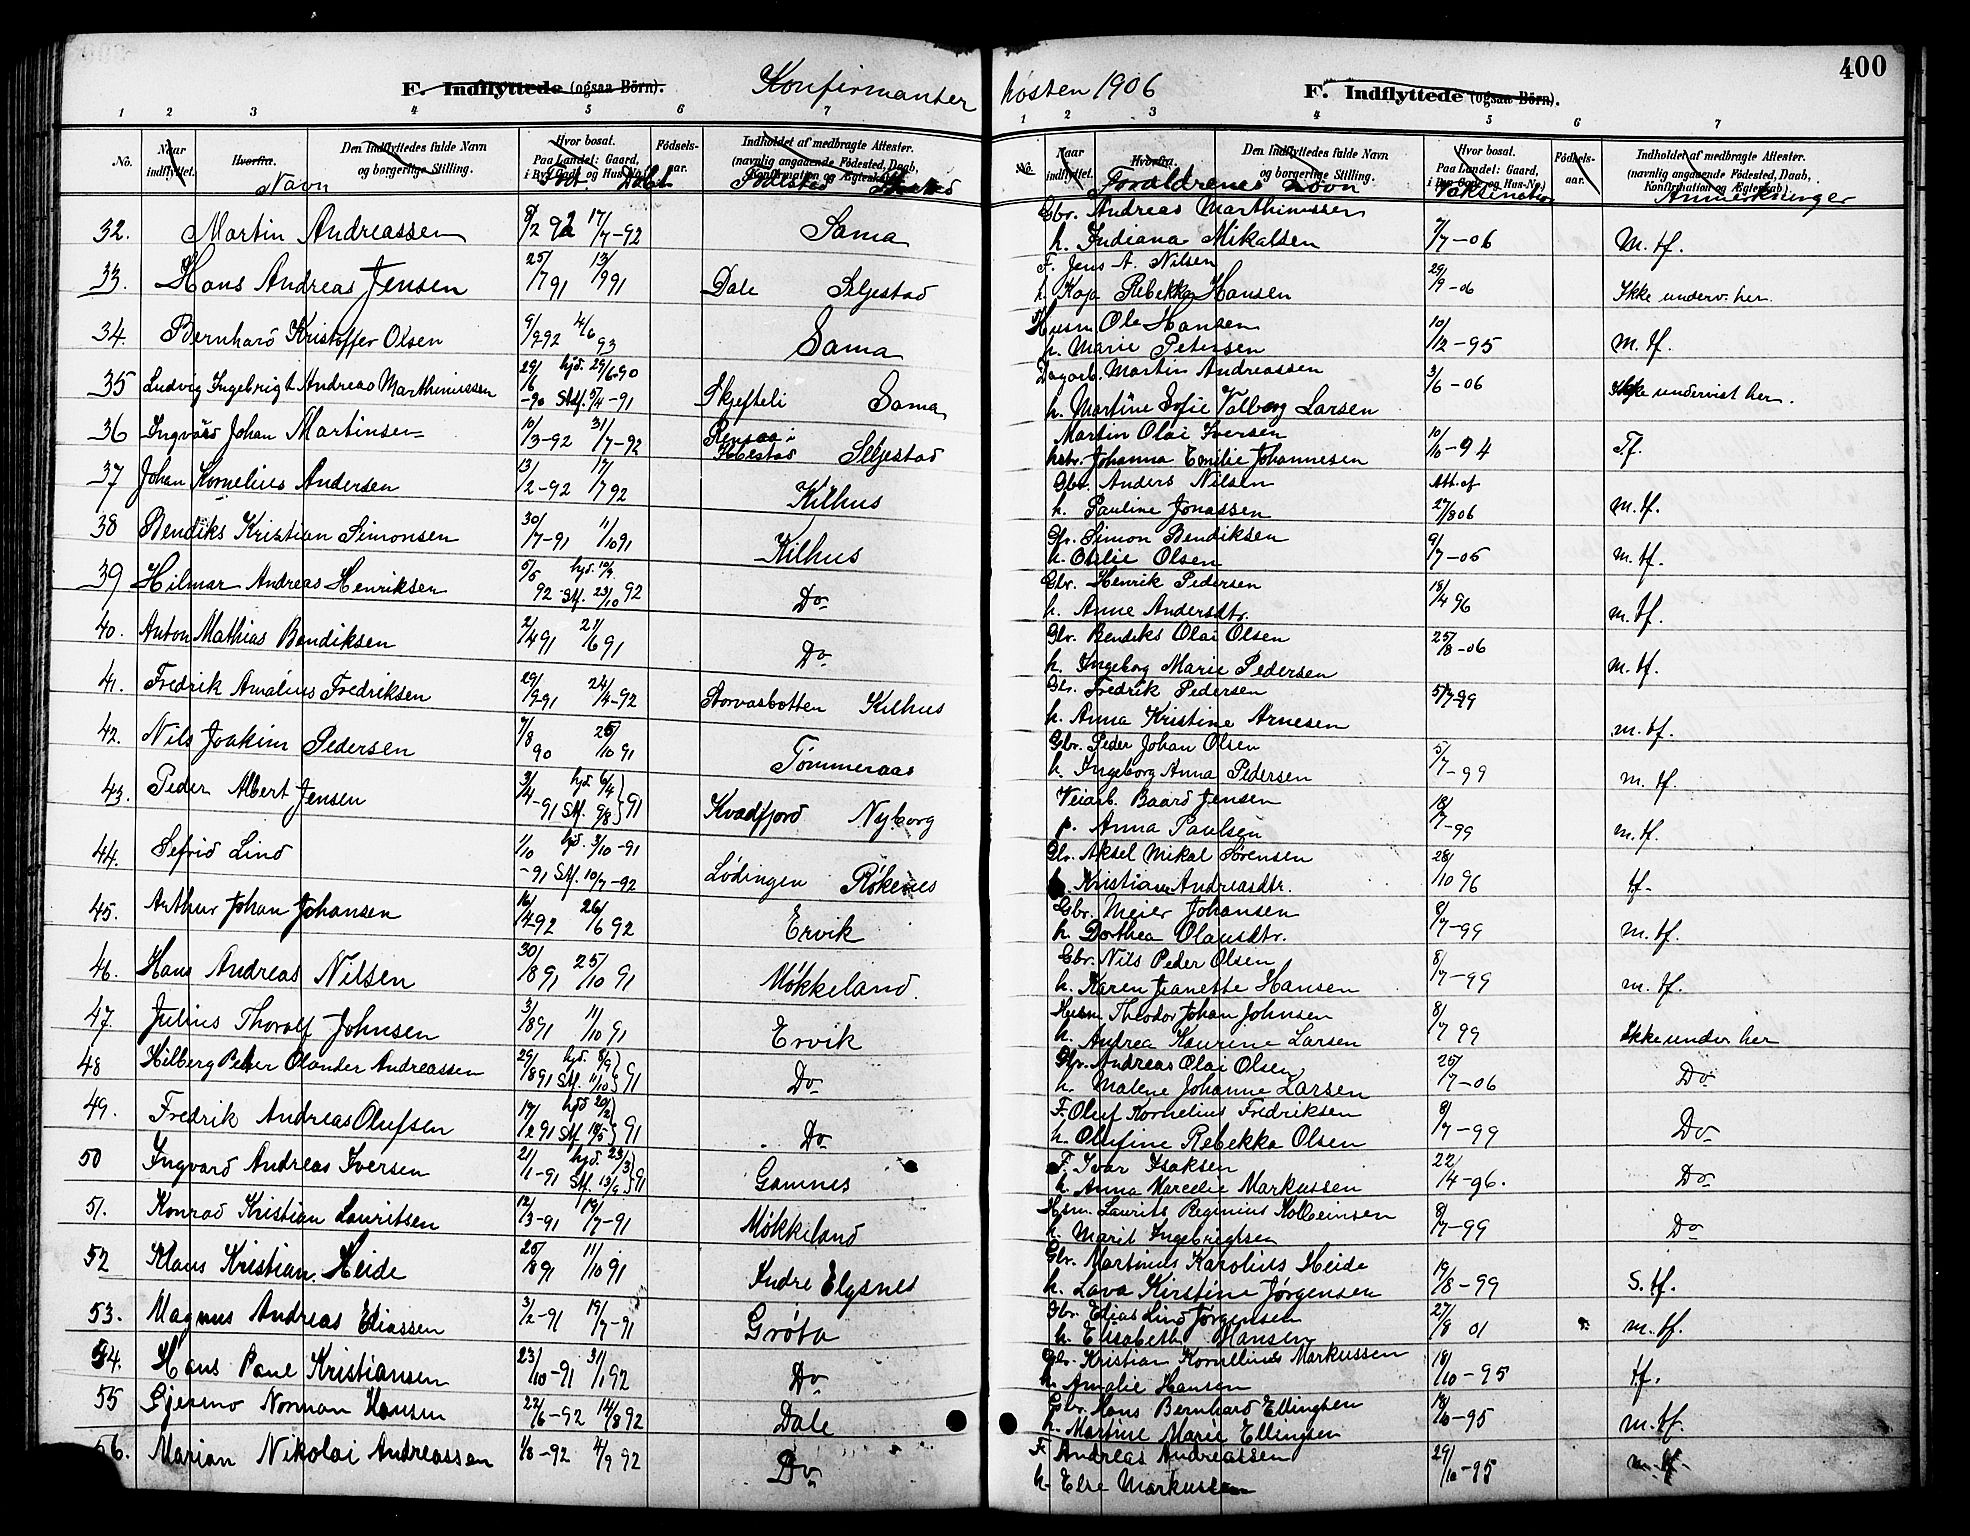 400
F. Indflyttede (ogsaa Börn).
Konfirmanter høsten 1906
F. Indflyttede (ogsaa Börn).
1 2 3 4 5 6 7
1 2 3 4 5 6 7
No. Naar indflyttet. Hvorfra. Den Indflyttedes fulde Navn og borgerlige Stilling. Hvor bosat. Paa Landet: Gaard, i By: Gade og Hus-No. Fødsels-aar. Indholdet af medbragte Attester. (navnlig angaaende Fødested, Daab, Konfirmation og Ægteskab)
Navn Født Døbt Fødested
No. Naar indflyttet. Hvorfra. Den Indflyttedes fulde Navn og borgerlige Stilling. Hvor bosat. Paa Landet: Gaard, i By: Gade og Hus-No.) Fødsels-aar. Indholdet af medbragte Attester. (navnlig angaaende Fødested, Daab, Konfirmation og Ægteskab)
Forældrenes navn Vaksination Anmerkninger
32. Martin Andreassen 8/2 92 17/7-92 Sama
Gbr. Andreas Marthinussen
h. Indiana Mikalsen 7/7-06 M. tf.
33. Hans Andreas Jensen 25/7 91 13/9 91 Dale Seljestad
F. Jens A. Nilsen
h. Kaja Rebekka Hansen 29/9-06 Ikke underv. her.
34. Bernhard Kristoffer Olsen 9/9 92 4/6 93 Sama
Husm Ole Hansen
h. Marie Petersen 10/12-95 M. tf.
35 Ludvig Ingebrigt Andreas Marthinussen 29/6-90 hjd. 29/6 90 Stf. 5/4-91 Skjefteli Sama
Dagarb. Martin Andreassen
h. Martine Sofie Valborg Larsen 3/6-06 Ikke undervist her.
36 Ingvard Johan Martinsen 10/3-92 31/7-92 Seljestad
Martin Olai Iversen
hstr. Johanna Emilie Johannesen 10/10-94 Tf.
37 Johan Kornelius Andersen 13/2-92 17/7 92 Kilhus
Gbr. Anders Nilsen
h. Pauline Jonassen 27/8 06 m. tf.
38 Bendiks Kristian Simonsen 30/7-91 11/10 91 Kilhus
Gbr. Simon Bendiksen
h. Otilie Olsen 9/7-06 m. tf.
39 Hilmar Andreas Henriksen 5/5 92 hjd. 10/7 Stf. 23/10 92 Do
Gbr. Henrik Pedersen
h. Anne Andersdtr. 18/4 96 m. tf.
40. Anton Mathias Bendiksen 2/4 91 21/6 91 Do
Gbr. Bendiks Olai Olsen
h. Ingeborg Marie Pedersen 25/8-06 m. tf.
41. Fredrik Amalius Fredriksen 29/9-91 24/4-92 Storvasbotten Kilhus
Gbr. Fredrik Pedersen
h. Anna Kristine Arnesen 5/7-99 m. tf.
42. Nils Joakim Pedersen 7/8 90 25/10 91 Tømmeraas
Gbr. Peder Johan Olsen
h. Ingeborg Anna Pedersen 5/7-99 m. tf.
43. Peder Albert Jensen 3/4-91 hjd. 6/4 Stf. 9/8 91 Kvædfjord Nyborg
Veiarb. Baard Jensen
p. Anna Paulsen 18/7-99 m. tf.
44. Sefrid Lind 1/10-91 hjd. 3/10-91 Stf. 10/7-92 Lødingen Røkenes
Gbr. Aksel Mikal Sørensen
h. Kristiane Andreasdtr. 28/10 96 tf.
45. Arthur Johan Johansen 16/4 92 26/6 92 Ervik
Gbr. Meier Johansen
h. Dorthea Olausdtr. 8/7-99 m. tf.
46. Hans Andreas Nilsen 30/8 91 25/10 91 Møkkeland.
Gbr. Nils Peder Olsen
h. Karen Jeanette Hansen 8/7-99 m. tf.
47. Julius Thoralf Johnsen 3/8 91 11/10 91 Ervik
Husm Theodor Johan Johnsen
h. Andrea Kaurine Larsen 8/7 99 Ikke under. her
48 Hilberg Peder Olander Andreassen 29/8 91 hjd. 8/9 Stf. 11/10 91 Do
Gbr. Andreas Olai Olsen
h. Malene Johanne Larsen 25/7-06 Do
49. Fredrik Andreas Olufsen 17/2 91 hjd 20/2 Stf. 18/5 91 Do
F. Oluf Kornelius Fredriksen
h. Olufine Rebekka Olsen 8/7-99 Do
50 Ingvard Andreas Iversen 21/1-91 hjd. 23/3 Stf. 13/9 91 Gamnes
F. Ivar Isaksen
h. Anna Marcelie Markussen 22/4-96. Do
51. Konrad Kristian Lauritsen 12/3-91 19/7-91 Møkkeland
Hsm. Laurits Reginius Kolbeinsen
h. Marit Ingebrigtsen 8/7-99 Do
52 Klaus Kristian Heide 25/8 91 11/10 91 Indre Elgsnes
Gbr. Martinus Karolius Heide
h. Lava Kirstine Jørgensen 19/8-99 S. tf.
53. Magnus Andreas Eliassen 3/2-91 19/7-91 Grøta
Gbr. Elias Lind Jørgensen
h. Elisabeth Hansen 27/8 01 m. tf.
54. Hans Paul Kristiansen 23/10-91 31/1 92 Do
Gbr. Kristian Kornelius Markussen
h. Amalie Hansen 18/10-95 tf.
55 Norman Hansen 22/6-92 14/8 92 Dale
Gbr. Hans Bernhard Ellingsen
h. Martine Marie Ellingsen 18/10-95 m. tf.
56. Marian Nikolai Andreassen 1/8-92 4/9 92 Do
F. Andreas Andreassen
h. Else Markussen 29/10-95 m. tf.